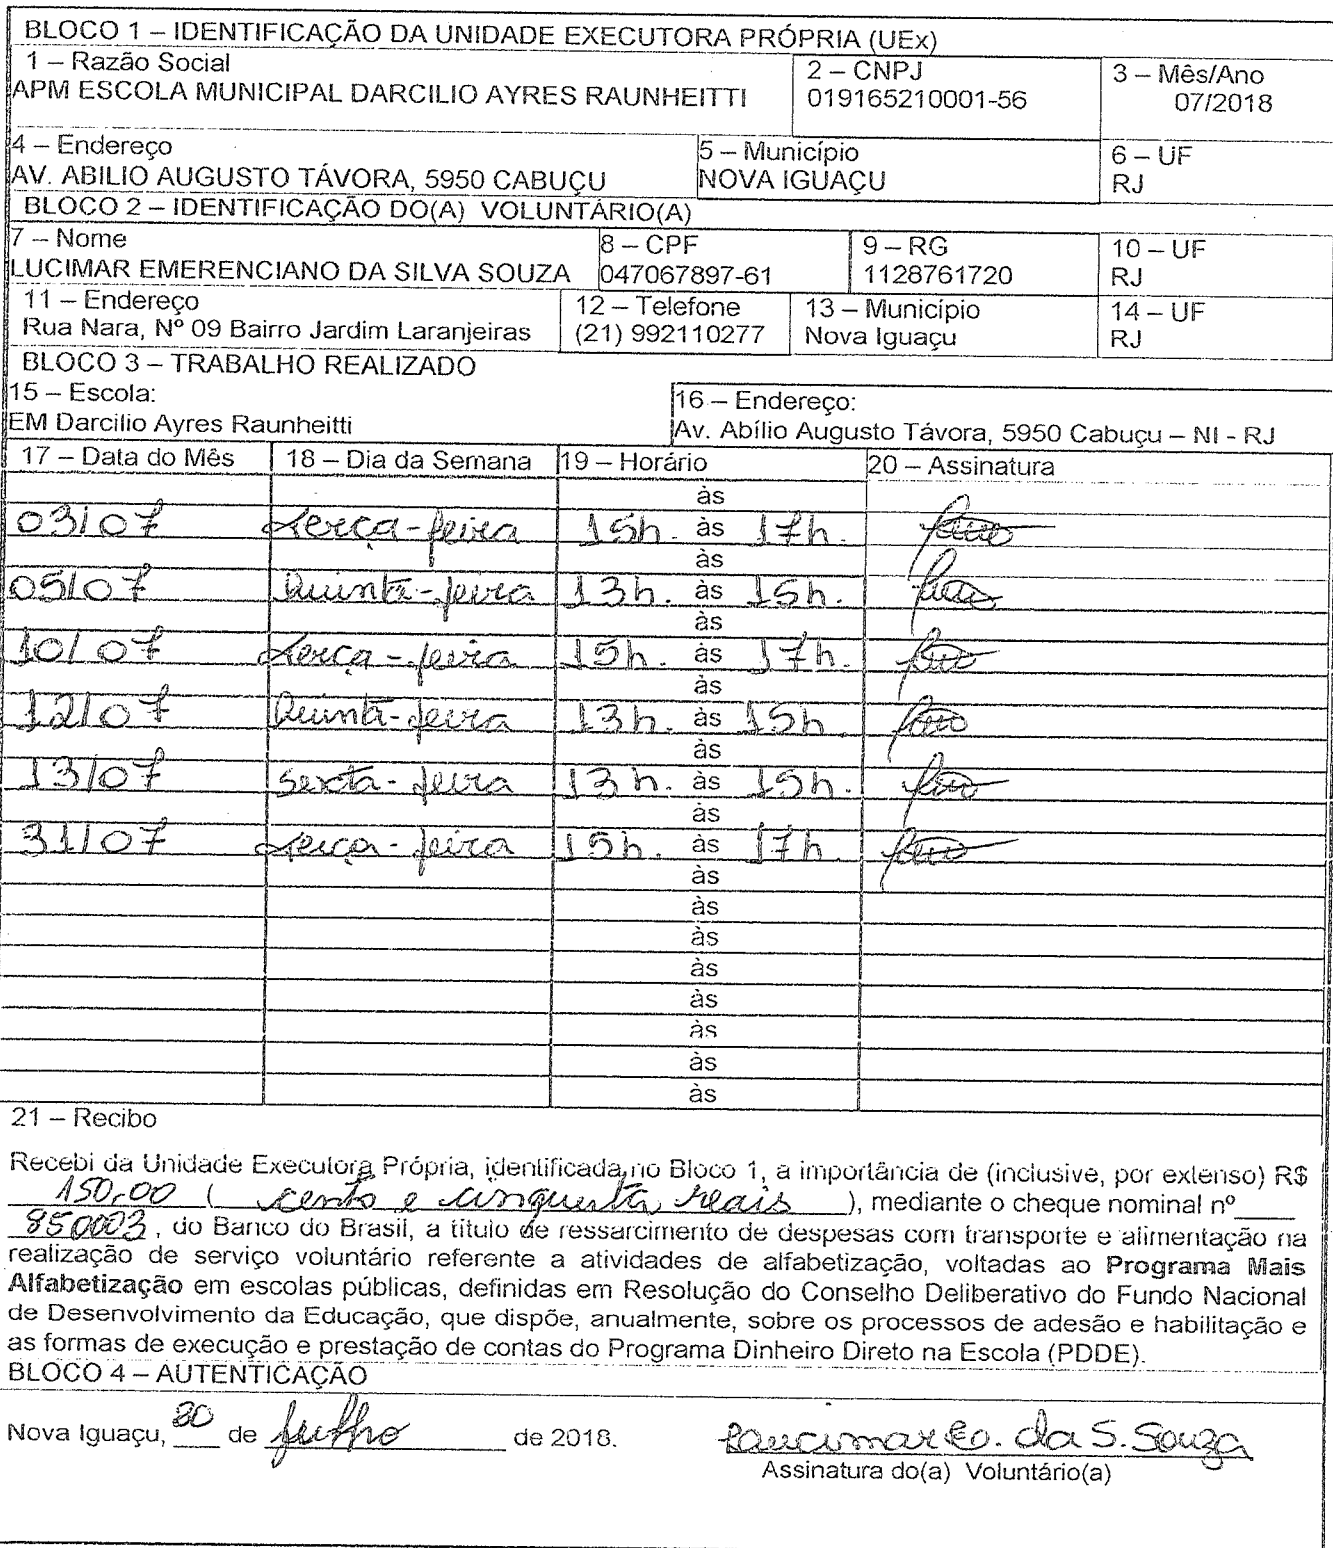 BLOCO 1 – IDENTIFICAÇÃO DA UNIDADE EXECUTORA PRÓPRIA (UEx)
1 – Razão Social
APM ESCOLA MUNICIPAL DARCILIO AYRES RAUNHEITTI
2 – CNPJ
019165210001-56
3 – Mês/Ano
07/2018
4 – Endereço
AV. ABILIO AUGUSTO TÁVORA, 5950 CABUÇU
5 – Município
NOVA IGUAÇU
6 – UF
RJ
BLOCO 2 – IDENTIFICAÇÃO DO(A) VOLUNTÁRIO(A)
7 – Nome
LUCIMAR EMERENCIANO DA SILVA SOUZA
8 – CPF
047067897-61
9 – RG
1128761720
10 – UF
RJ
11 – Endereço
Rua Nara, Nº 09 Bairro Jardim Laranjeiras
12 – Telefone
(21) 992110277
13 – Município
Nova Iguaçu
14 – UF
RJ
BLOCO 3 – TRABALHO REALIZADO
15 – Escola:
EM Darcilio Ayres Raunheitti
16 – Endereço:
Av. Abílio Augusto Távora, 5950 Cabuçu – NI - RJ
17 – Data do Mês 18 – Dia da Semana 19 – Horário 20 – Assinatura
às
03/07 terça-feira 15h. às 17h.
às
05/07 Quinta-feira 13h. às 15h.
às
10/07 terça-feira 15h. às 17h.
às
12/07 Quinta-feira 13h. às 15h
às
13/07 sexta-feira 13h. às 15h.
às
31/07 terça-feira 15h. às 17h
às
às
às
às
às
às
às
às
21 – Recibo
Recebi da Unidade Executora Própria, identificada no Bloco 1, a importância de (inclusive, por extenso) R$
150,00 ( cento e cinquenta reais ), mediante o cheque nominal nº
850003, do Banco do Brasil, a título de ressarcimento de despesas com transporte e alimentação na
realização de serviço voluntário referente a atividades de alfabetização, voltadas ao Programa Mais
Alfabetização em escolas públicas, definidas em Resolução do Conselho Deliberativo do Fundo Nacional
de Desenvolvimento da Educação, que dispõe, anualmente, sobre os processos de adesão e habilitação e
as formas de execução e prestação de contas do Programa Dinheiro Direto na Escola (PDDE).
BLOCO 4 – AUTENTICAÇÃO
Nova Iguaçu, de julho de 2018.
Lucimar E. da S. Souza
Assinatura do(a) Voluntário(a)